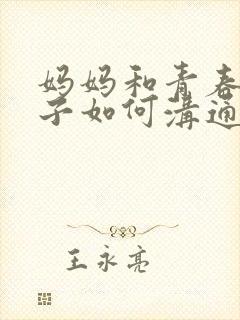 妈妈和青春
子如何溝通
王永亮